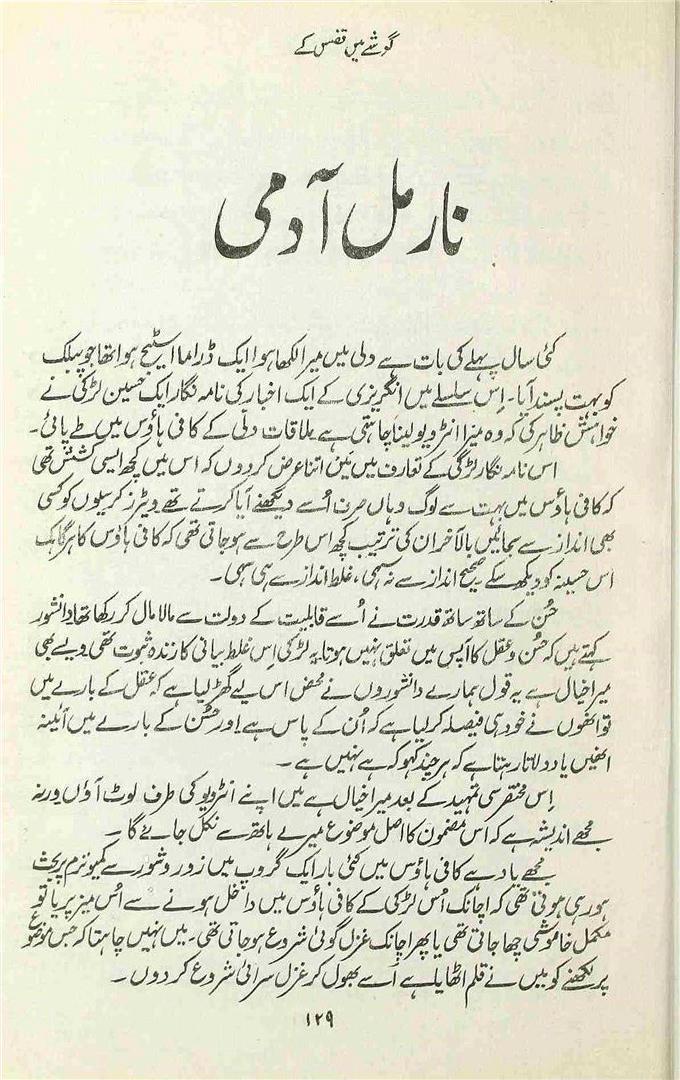 گوشے میں قفس کے
نارمل آدمی
کئی سال پہلے کی بات ہے دلی میں میرا لکھا ہوا ایک ڈراما اسٹیج ہوا تھا جو پبلک
کو بہت پسند آیا۔ اِس سلسلے میں انگریزی کے ایک اخبار کی نامہ نگار ایک حسین لڑکی نے
خواہش ظاہر کی کہ وہ میرا انٹرویو لینا چاہتی ہے ملاقات دلی کے کافی ہاؤس میں طے پائی۔
اس نامہ نگار لڑکی کے تعارف میں مَیں اتنا عرض کردوں کہ اس میں کچھ ایسی کشش تھی
کہ کافی ہاؤس میں بہت سے لوگ وہاں صرف اُسے دیکھنے آیا کرتے تھے ویٹرز کرسیوں کو کسی
بھی انداز سے سجائیں بالآخر ان کی ترتیب کچھ اس طرح سے ہوجاتی تھی کہ کافی ہاؤس کا ہر گاہک
اس حسینہ کو دیکھ سکے صحیح انداز سے نہ سہی، غلط انداز سے ہی سہی۔
حُسن کے ساتھ ساتھ قدرت نے اُسے قابلیت کے دولت سے مالا مال کر رکھا تھا دانشور
کہتے ہیں کہ حُسن و عقل کا آپس میں تعلق نہیں ہوتا یہ لڑکی اِس غلط بیانی کا زندہ ثبوت تھی ویسے بھی
میرا خیال ہے یہ قول ہمارے دانشوروں نے محض اس لیے گھڑ لیا ہے کہ عقل کے بارے میں
تو انھوں نے خود ہی فیصلہ کر لیا ہے کہ اُن کے پاس ہے اور حُسن کے بارے میں آئینہ
انھیں یاد دلاتا رہتا ہے کہ ہر چند کہو کہ ہے نہیں ہے۔
اِس مختصر سی تمہید کے بعد میرا خیال ہے میں اپنے انٹرویو کی طرف لوٹ آؤں ورنہ
مجھے اندیشہ ہے کہ اس مضمون کا اصل موضوع میرے ہاتھ سے نکل جائے گا۔
مجھے یاد ہے کافی ہاؤس میں کئی بار ایک گروپ میں زور و شور سے کمیونزم پر بحث
ہو رہی ہوتی تھی کہ اچانک اُس لڑکی کے کافی ہاؤس میں داخل ہونے سے اُس میز پر یا تو
مکمل خاموشی چھا جاتی تھی یا پھر اچانک غزل گوئی شروع ہوجاتی تھی۔ میں نہیں چاہتا کہ جس موضوع
پر لکھنے کو میں نے قلم اٹھایا ہے اُسے بھول کر غزل سرائی شروع کردوں۔
۱۲۹